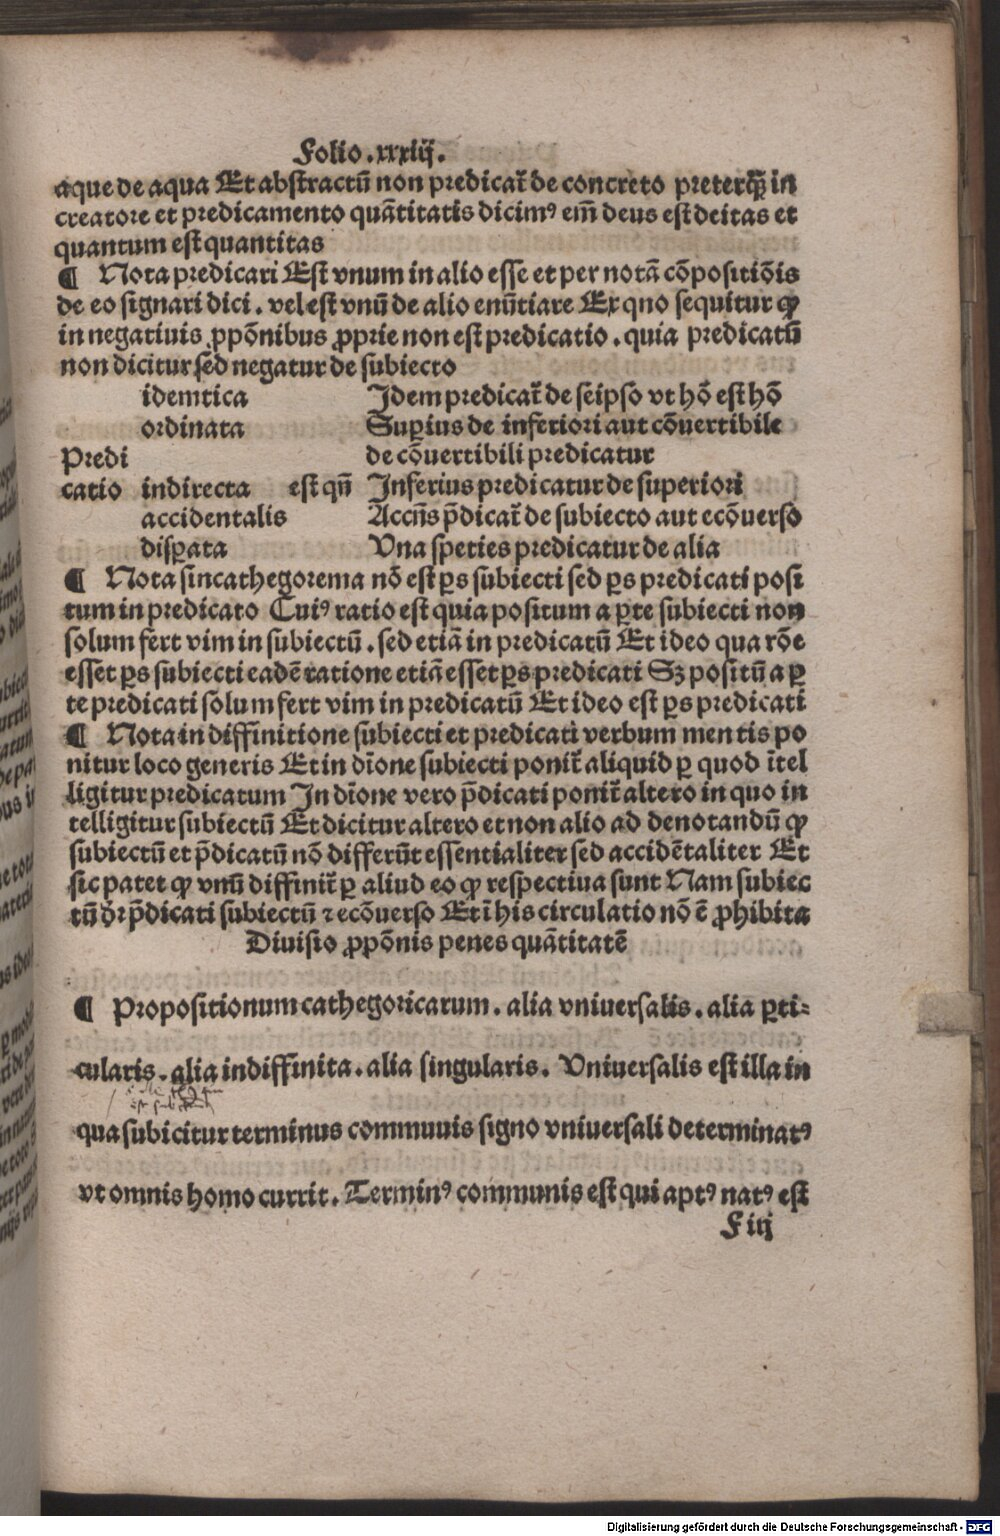 Folio.xxxiij.
aque de aqua Et abstractū non predicat̄ de concreto preterq̄ꝫ in
creatore et predicamento quātitatis dicimꝰ em̄ deus est deitas et
quantum est quantitas
¶ Nota predicari Est vnum in alio esse et per notā cōpositiōis
de eo signari dici. vel est vnū de alio enūtiare Ex qno sequitur ꝙ
in negatiuis ꝓpōnibus ꝓprie non est predicatio. quia predicatū
non dicitur sed negatur de subiecto
idemtica Idem predicat̄ de seipso vt hō est hō
ordinata Supīus de inferiori aut cōuertibile
Predi de cōuertibili predicatur
catio indirecta est qn̄ Inferius predicatur de superiori
accidentalis Accn̄s p̄dicat̄ de subiecto aut ecōuerso
disꝑata Vna species predicatur de alia
¶ Nota sincathegorema nō est ꝑs subiecti sed ꝑs predicati posi
tum in predicato Cuiꝰ ratio est quia positum a ꝑte subiecti non
solum fert vim in subiectū. sed etiā in predicatū Et ideo qua rōe
esset ꝑs subiecti eadē ratione etiā esset ꝑs predicati Sꝫ positū a ꝑ
te predicati solum fert vim in predicatū Et ideo est ꝑs predicati
¶ Nota in diffinitione subiecti et predicati verbum mentis po
nitur loco generis Et in dīone subiecti ponit̄ aliquid ꝑ quod ītel
ligitur predicatum In dīone vero p̄dicati ponit̄ altero in quo in
telligitur subiectū Et dicitur altero et non alio ad denotandū ꝙ
subiectū et p̄dicatū nō differūt essentialiter sed accidētaliter Et
sic patet ꝙ vnū diffinit̄ ꝑ aliud eo ꝙ respectiua sunt Nam subiec
tū dr̄ p̄dicati subiectū ⁊ ecōuerso Et ī his circulatio nō ē ꝓhibita
Diuisio ꝓpōnis penes quātitatē
¶ Propositionum cathegoricarum. alia vniuersalis. alia ꝑti⸗
cularis. alia indiffinita. alia singularis. Vniuersalis est illa in
qua subicitur terminus communis signo vniuersali determinatꝰ
vt omnis homo currit. Terminꝰ communis est qui aptꝰ natꝰ est
F iij
Digitalisierung gefördert durch die Deutsche Forschungsgemeinschaft - DFG